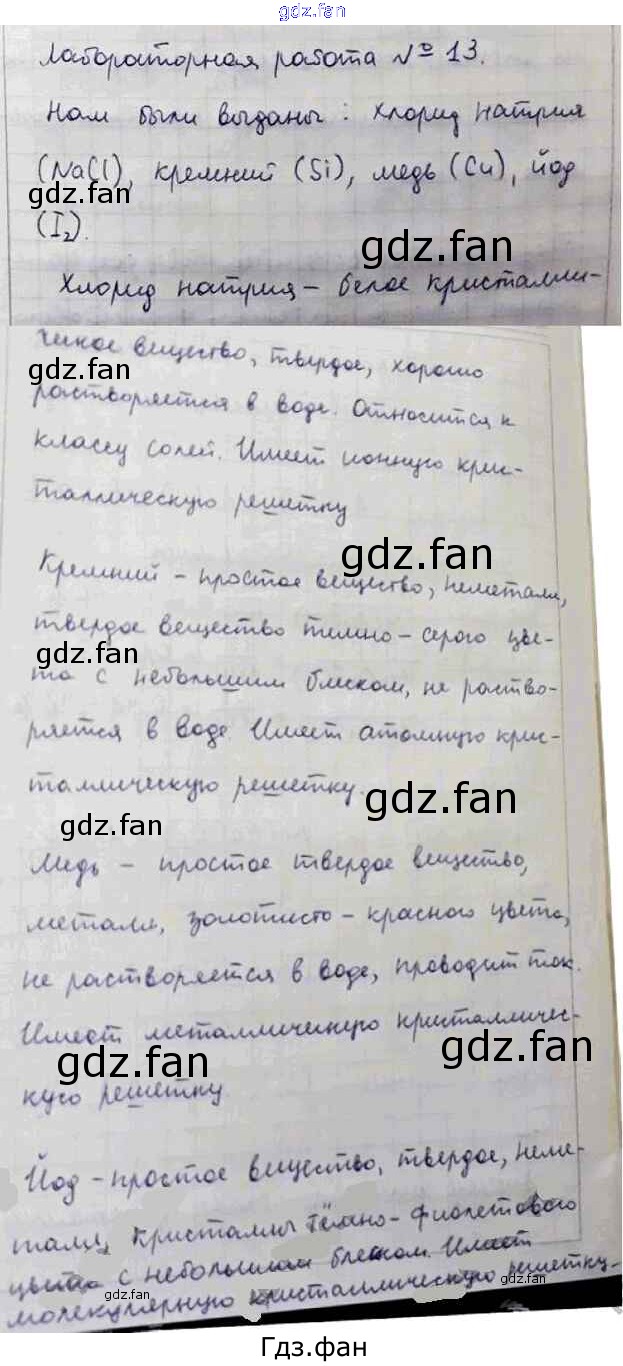 gdz.fan
Лабораторная работа № 13.
Нам были выданы: хлорид натрия
(NaCl), кремний (Si), медь (Cu), йод
gdz.fan
(I₂).
gdz.fan
Хлорид натрия – белое кристалли-
ческое вещество, твердое, хорошо
gdz.fan
растворяется в воде. Относится к
классу солей. Имеет ионную крис-
таллическую решетку
gdz.fan
Кремний – простое вещество, неметалл,
твердое вещество темно-серого цве-
gdz.fan
та с небольшим блеском, не раство-
ряется в воде. Имеет атомную крис-
таллическую решетку.
gdz.fan
gdz.fan
Медь – простое твердое вещество,
металл, золотисто-красного цвета,
не растворяется в воде, проводит ток.
Имеет металлическую кристалличес-
gdz.fan
gdz.fan
кую решетку.
Йод – простое вещество, твердое, неме-
талл, кристаллы тёмно-фиолетового
цвета с небольшим блеском. Имеет
молекулярную кристаллическую решетку.
gdz.fan
gdz.fan
Гдз.фан